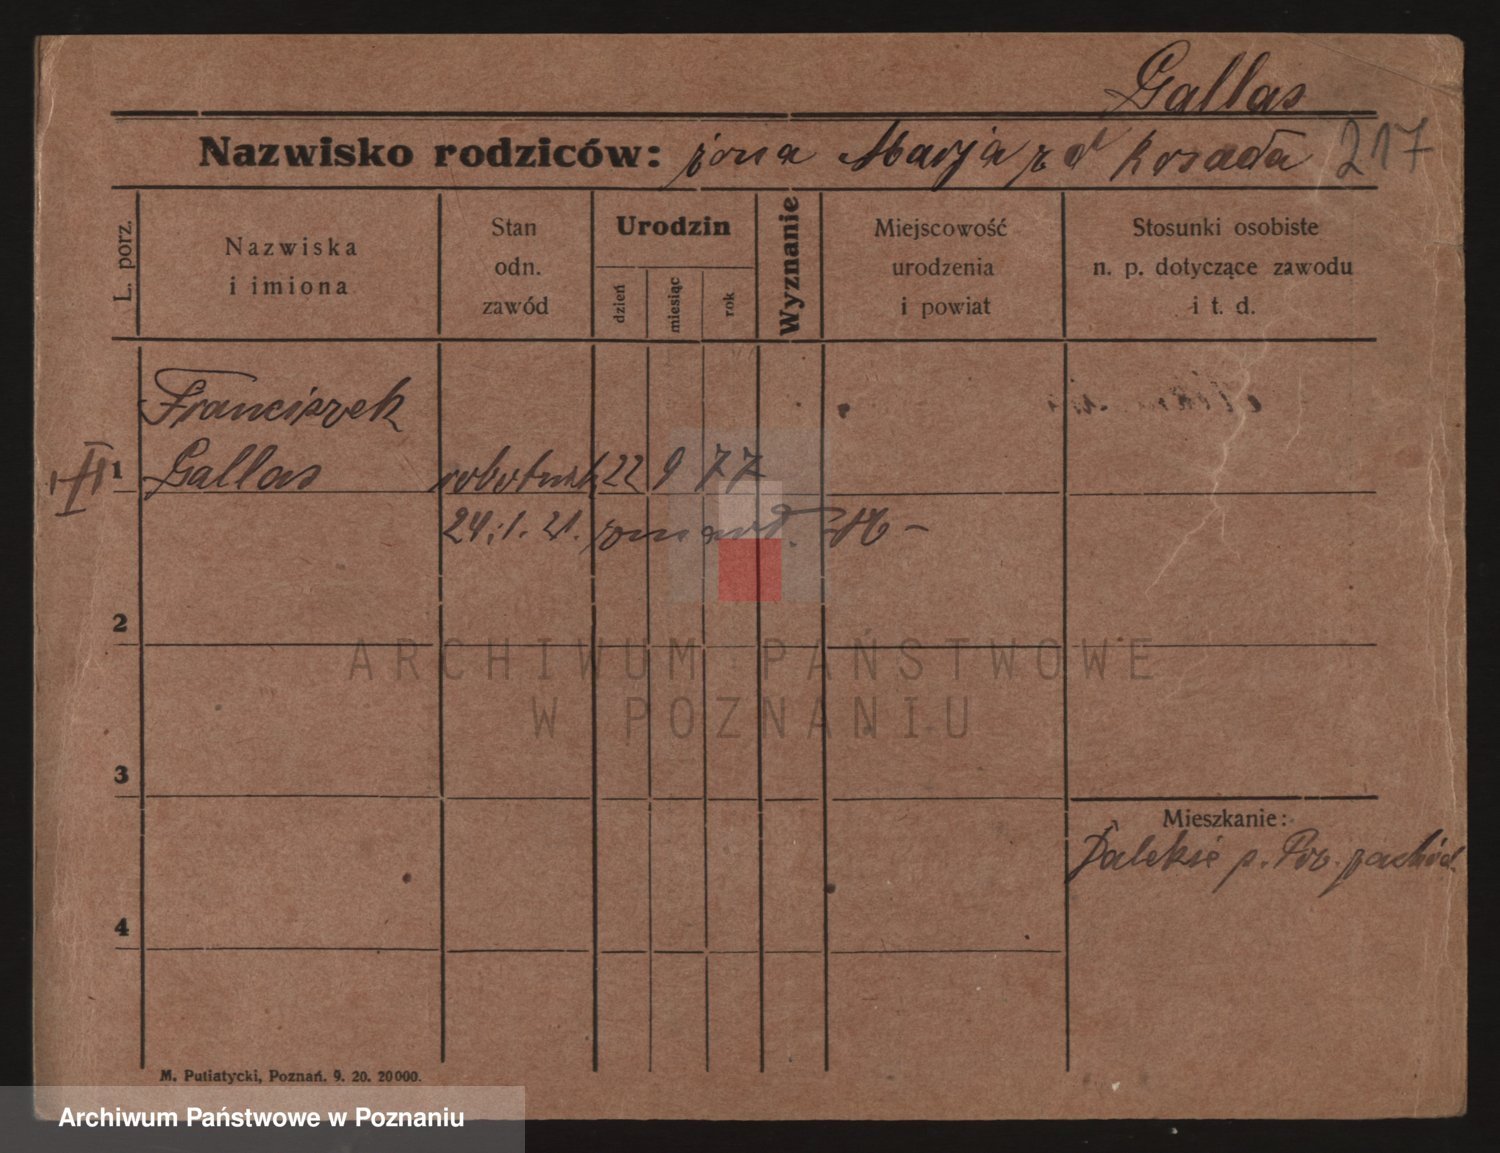 Gallas
Nazwisko rodziców: żona Marja zd Kosada 217
L. porz.
Nazwiska
i imiona
Stan
odn.
zawód
Urodzin
dzień
miesiąc
rok
Wyznanie
Miejscowość
urodzenia
i powiat
Stosunki osobiste
n. p. dotyczące zawodu
i t. d.
Franciszek
1 Gallas robotnik 22 9 77
24.1.21.
2
ARCHIWUM PAŃSTWOWE
W POZNANIU
3
Mieszkanie:
Dalekie p. Poz. zachód.
4
M. Putiatycki, Poznań. 9. 20. 20000.
Archiwum Państwowe w Poznaniu